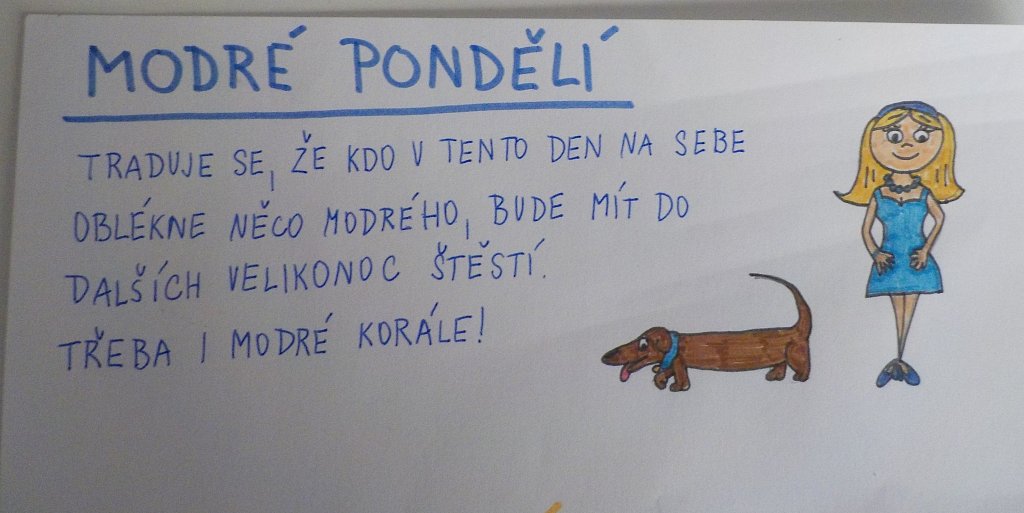 MODRÉ PONDĚLÍ
TRADUJE SE, ŽE KDO V TENTO DEN NA SEBE
OBLÉKNE NĚCO MODRÉHO, BUDE MÍT DO
DALŠÍCH VELIKONOC ŠTĚSTÍ.
TŘEBA I MODRÉ KORÁLE!